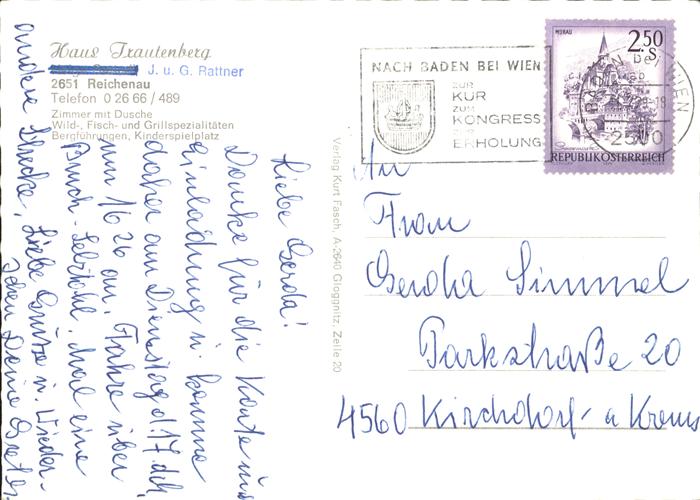 Haus Trautenberg
J. u. G. Rattner
2651 Reichenau
Telefon 0 26 66 / 489
Zimmer mit Dusche
Wild-, Fisch- und Grillspezialitäten
Bergführungen, Kinderspielplatz
Liebe Gerda!
Danke für die Karte und
Einladung u. komme
daher am Dienstag d. 17. d.
um 16 26 an. Fahre über
Bruch- Selztal. Mal eine
andere Strecke. Liebe Grüße u. Wieder-
sehen Deine Grete
Verlag Kurt Fasch, A-2640 Gloggnitz, Zeile 20
NACH BADEN BEI WIEN
ZUR
KUR
ZUM
KONGRESS
ZUR
ERHOLUNG
MURAU
2.50
S
REPUBLIK ÖSTERREICH
BADEN bei WIEN
2500
An
Frau
Gerda Simmel
Parkstraße 20
4560 Kirchdorf a Krems